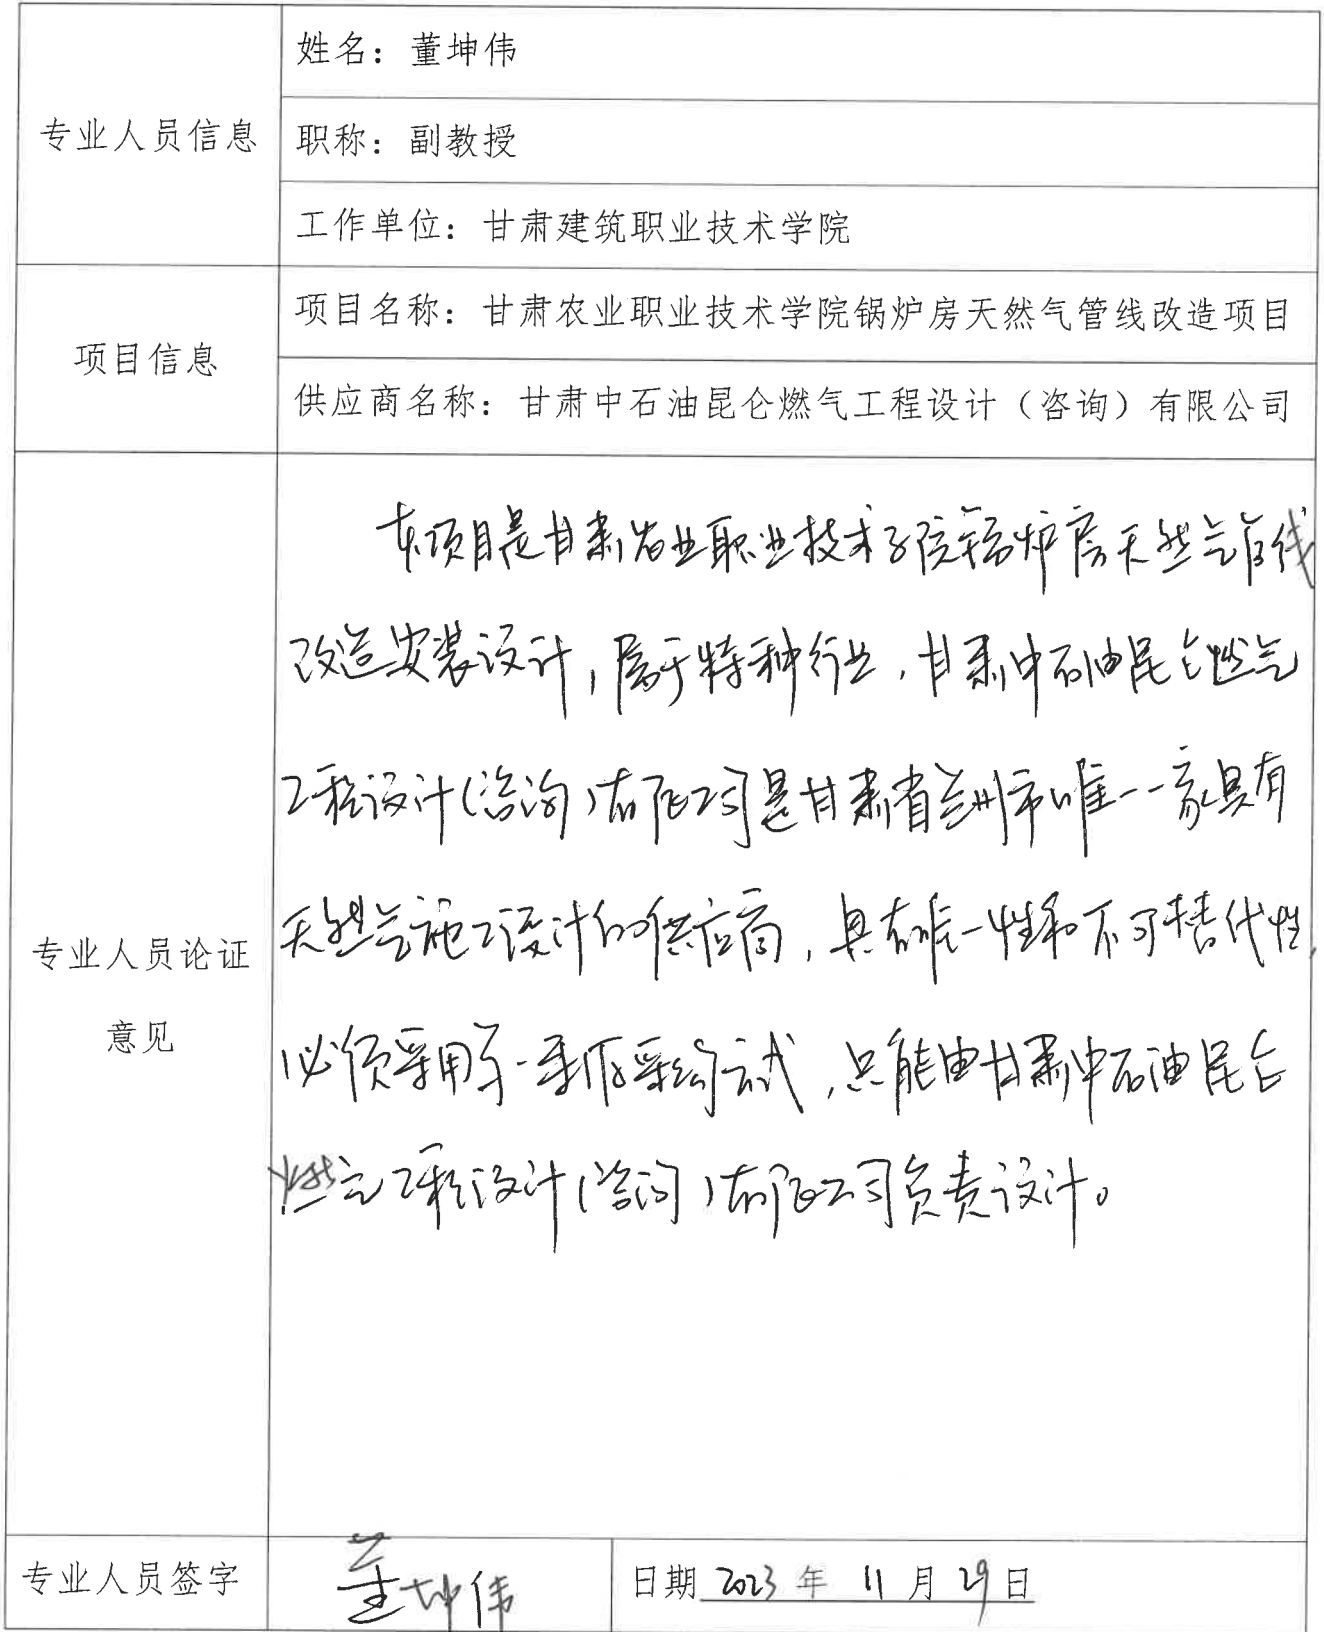 姓名：董坤伟
专业人员信息
职称：副教授
工作单位：甘肃建筑职业技术学院
项目名称：甘肃农业职业技术学院锅炉房天然气管线改造项目
项目信息
供应商名称：甘肃中石油昆仑燃气工程设计（咨询）有限公司
本项目是甘肃农业职业技术学院锅炉房天然气管线
改造安装设计，属于特种行业，甘肃中石油昆仑燃气
工程设计(咨询)有限公司是甘肃省兰州市唯一一家具有
天然气施工设计的供应商，具有唯一性和不可替代性，
专业人员论证
意见
必须采用单一来源采购方式，只能由甘肃中石油昆仑
燃气工程设计(咨询)有限公司负责设计。
专业人员签字 董坤伟 日期 2023 年 11 月 29 日